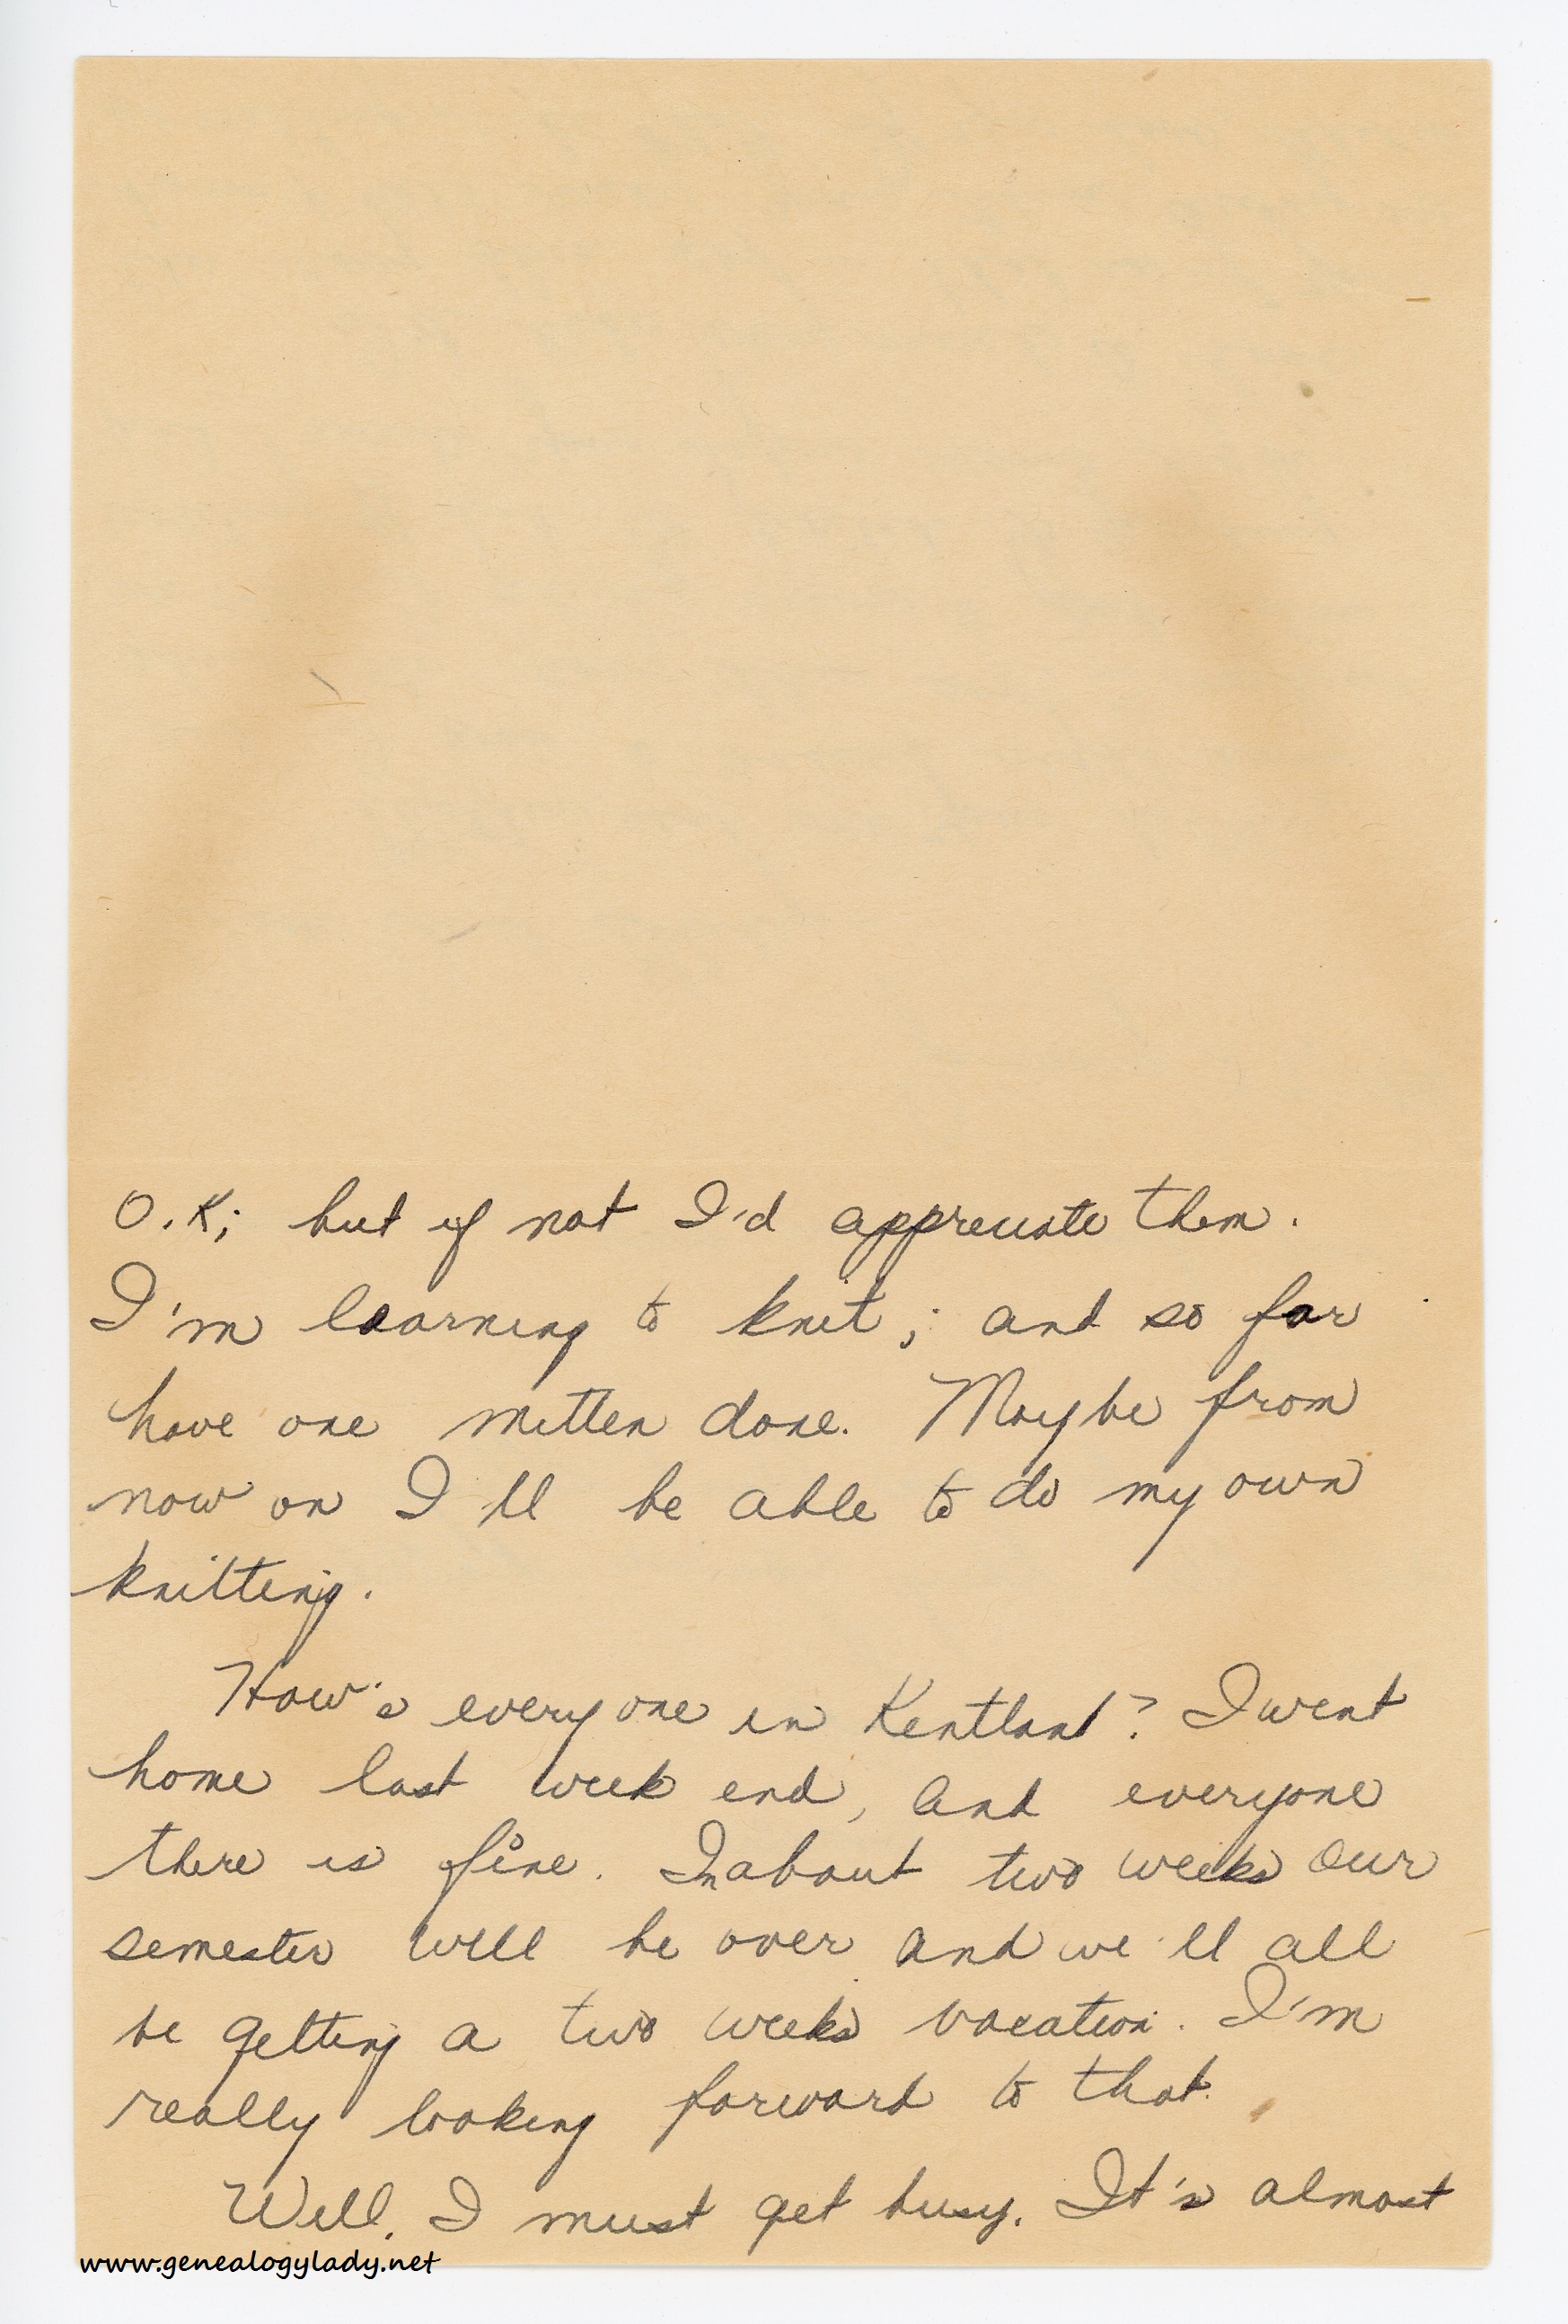 O.K; but if not I'd appreciate them.
I'm learning to knit; and so far
have one mitten done. Maybe from
now on I'll be able to do my own
knitting.
How's everyone in Kentland? I went
home last week end, and everyone
there is fine. In about two weeks our
semester will be over and we'll all
be getting a two weeks vacation. I'm
really looking forward to that.
Well, I must get busy. It's almost
www.genealogylady.net